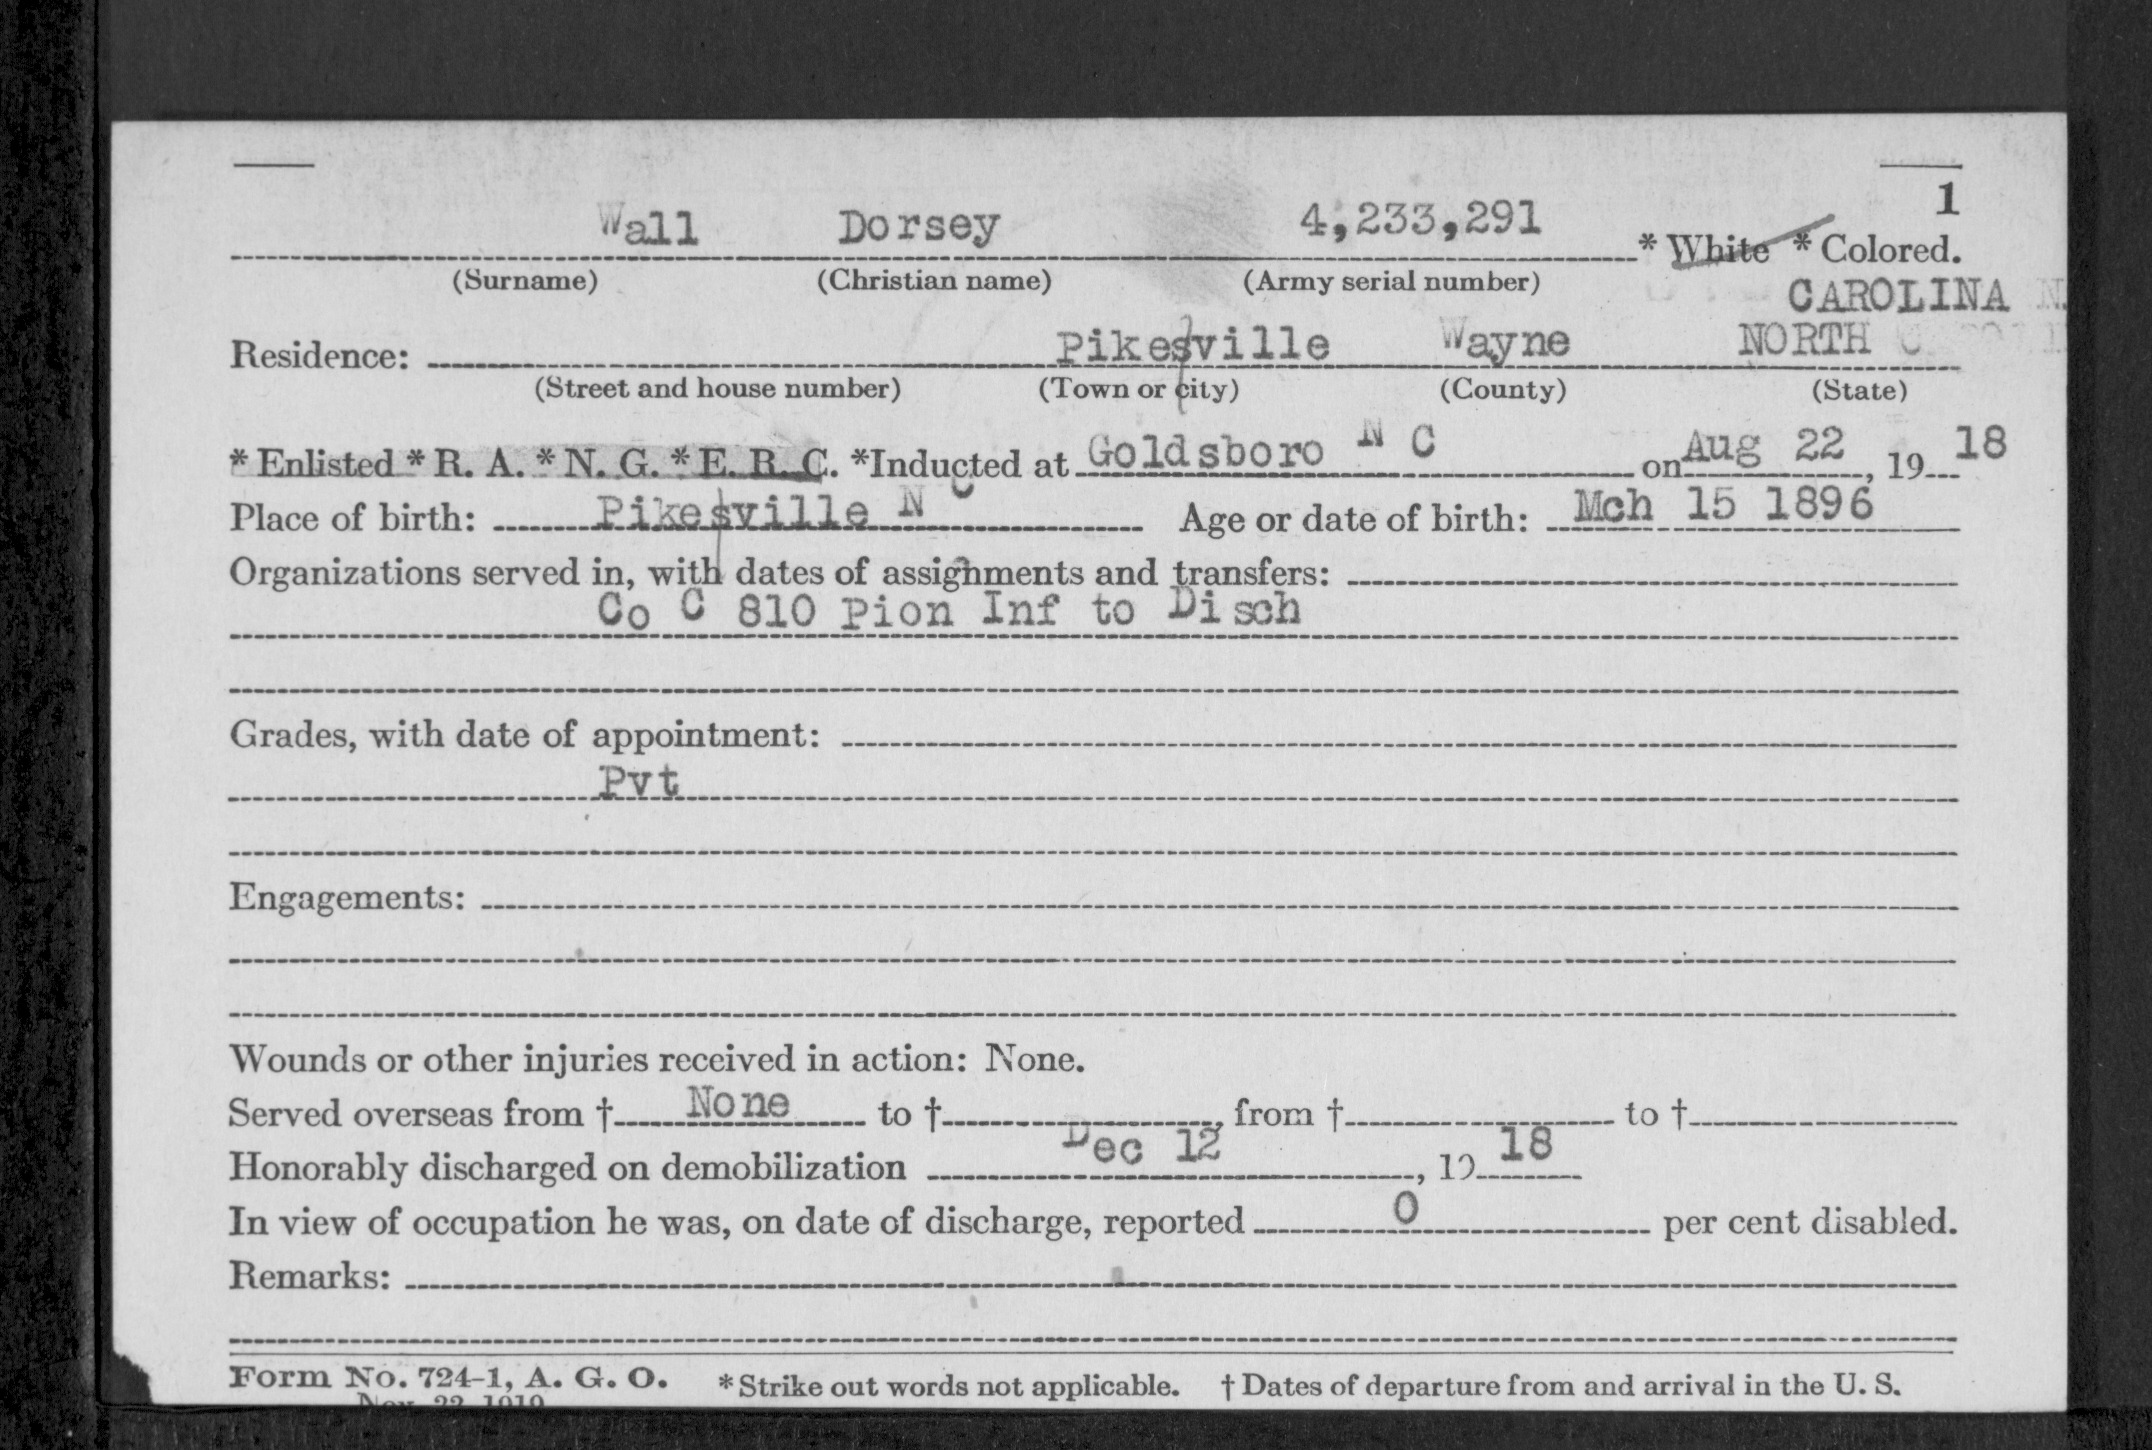 1
Wall Dorsey 4,233,291 * White * Colored.
(Surname) (Christian name) (Army serial number)
CAROLINA N.
Residence: Pikesville Wayne NORTH
(Street and house number) (Town or city) (County) (State)
* Enlisted * R. A. * N. G. * E. R. C. *Inducted at Goldsboro N C on Aug 22, 19 18
Place of birth: Pikesville N C Age or date of birth: Mch 15 1896
Organizations served in, with dates of assignments and transfers:
Co C 810 Pion Inf to Disch
Grades, with date of appointment:
Pvt
Engagements:
Wounds or other injuries received in action: None.
Served overseas from † None to †, from † to †
Honorably discharged on demobilization Dec 12, 19 18
In view of occupation he was, on date of discharge, reported 0 per cent disabled.
Remarks:
Form No. 724-1, A. G. O. * Strike out words not applicable. † Dates of departure from and arrival in the U. S.
Nov. 22 1919